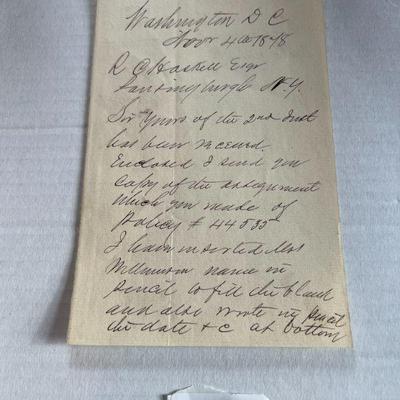 Washington D C
Novr 4th 1878
R C Haskell Esqr
Lansingburgh N.Y.
Sir Yours of the 2nd Inst
has been received.
Enclosed I send you
copy of the assignment
which you made of
Policy # 44535
I have inserted Mrs
name in
pencil to fill the blank
and also wrote in pencil
the date & c at bottom